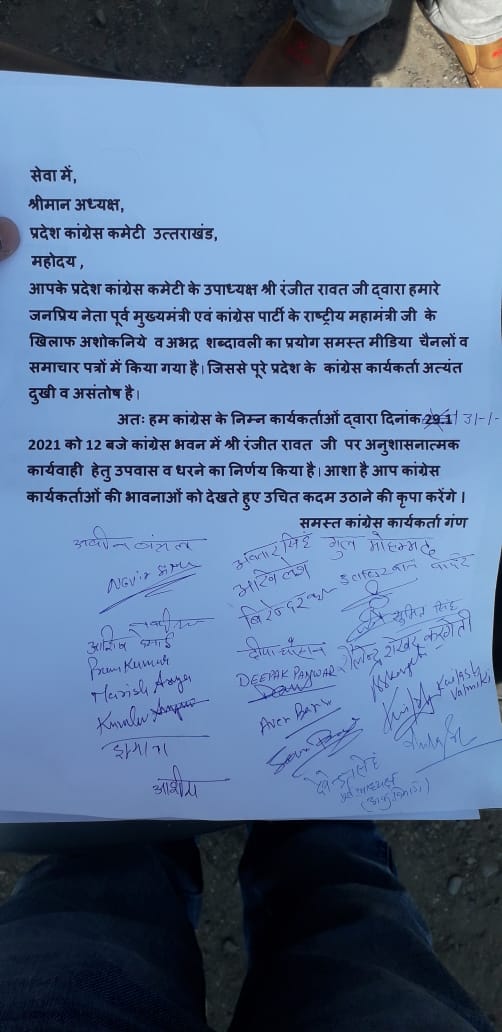 सेवा में,
श्रीमान अध्यक्ष,
प्रदेश कांग्रेस कमेटी उत्तराखंड,
महोदय ,
आपके प्रदेश कांग्रेस कमेटी के उपाध्यक्ष श्री रंजीत रावत जी द्वारा हमारे
जनप्रिय नेता पूर्व मुख्यमंत्री एवं कांग्रेस पार्टी के राष्ट्रीय महामंत्री जी के
खिलाफ अशोकनिये व अभद्र शब्दावली का प्रयोग समस्त मीडिया चैनलों व
समाचार पत्रों में किया गया है। जिससे पूरे प्रदेश के कांग्रेस कार्यकर्ता अत्यंत
दुखी व असंतोष है।
अतः हम कांग्रेस के निम्न कार्यकर्ताओं द्वारा दिनांक 31-1-
2021 को 12 बजे कांग्रेस भवन में श्री रंजीत रावत जी पर अनुशासनात्मक
कार्यवाही हेतु उपवास व धरने का निर्णय किया है। आशा है आप कांग्रेस
कार्यकर्ताओं की भावनाओं को देखते हुए उचित कदम उठाने की कृपा करेंगे ।
समस्त कांग्रेस कार्यकर्ता गण
गुल मोहम्मद
सुमित सिंह
Prem Kumar
DEEPAK PANWAR
Harish Arya
Kailash
Valmiki
आशीष